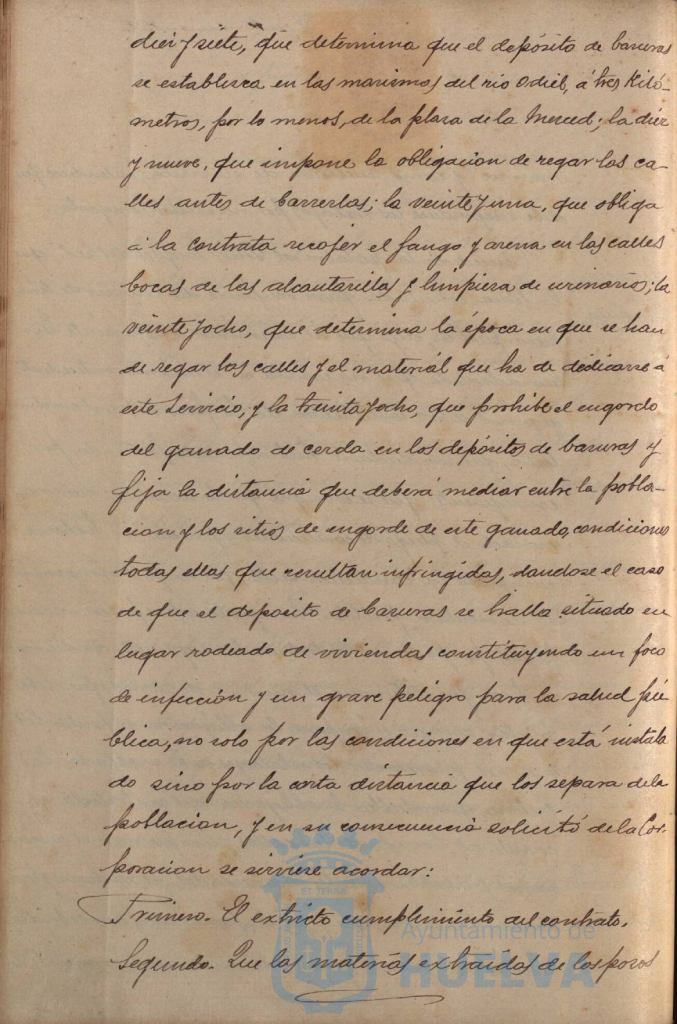 diez y siete, que determina que el depósito de basuras
se establezca en las marismas del rio Odiel, á tres Kiló-
metros, por lo menos, de la plaza de la Merced; la diez
y nueve, que impone la obligacion de regar las ca-
lles antes de barrerlas; la veinte y una, que obliga
á la contrata recojer el fango y arena en las calles
bocas de las alcantarillas y limpieza de urinarios; la
veinte y ocho, que determina la época en que se han
de regar las calles y el material que ha de dedicarse á
este servicio, y la treinta y ocho, que prohibe el engordo
del ganado de cerda en los depósitos de basuras y
fija la distancia que deberá mediar entre la pobla-
cion y los sitios de engorde de este ganado, condiciones
todas ellas que resultan infringidas, dandose el caso
de que el deposito de basuras se halla situado en
lugar rodeado de viviendas constituyendo un foco
de infección y un grave peligro para la salud pú
blica, no solo por las condiciones en que está instala
do sino por la corta distancia que los separa de la
poblacion, y en su consecuencia solicitó de la Cor-
poracion se sirviese acordar:
Primero. El extricto cumplimiento del contrato.
Segundo. Que las materias extraidas de los pozos
Ayuntamiento de
HUELVA